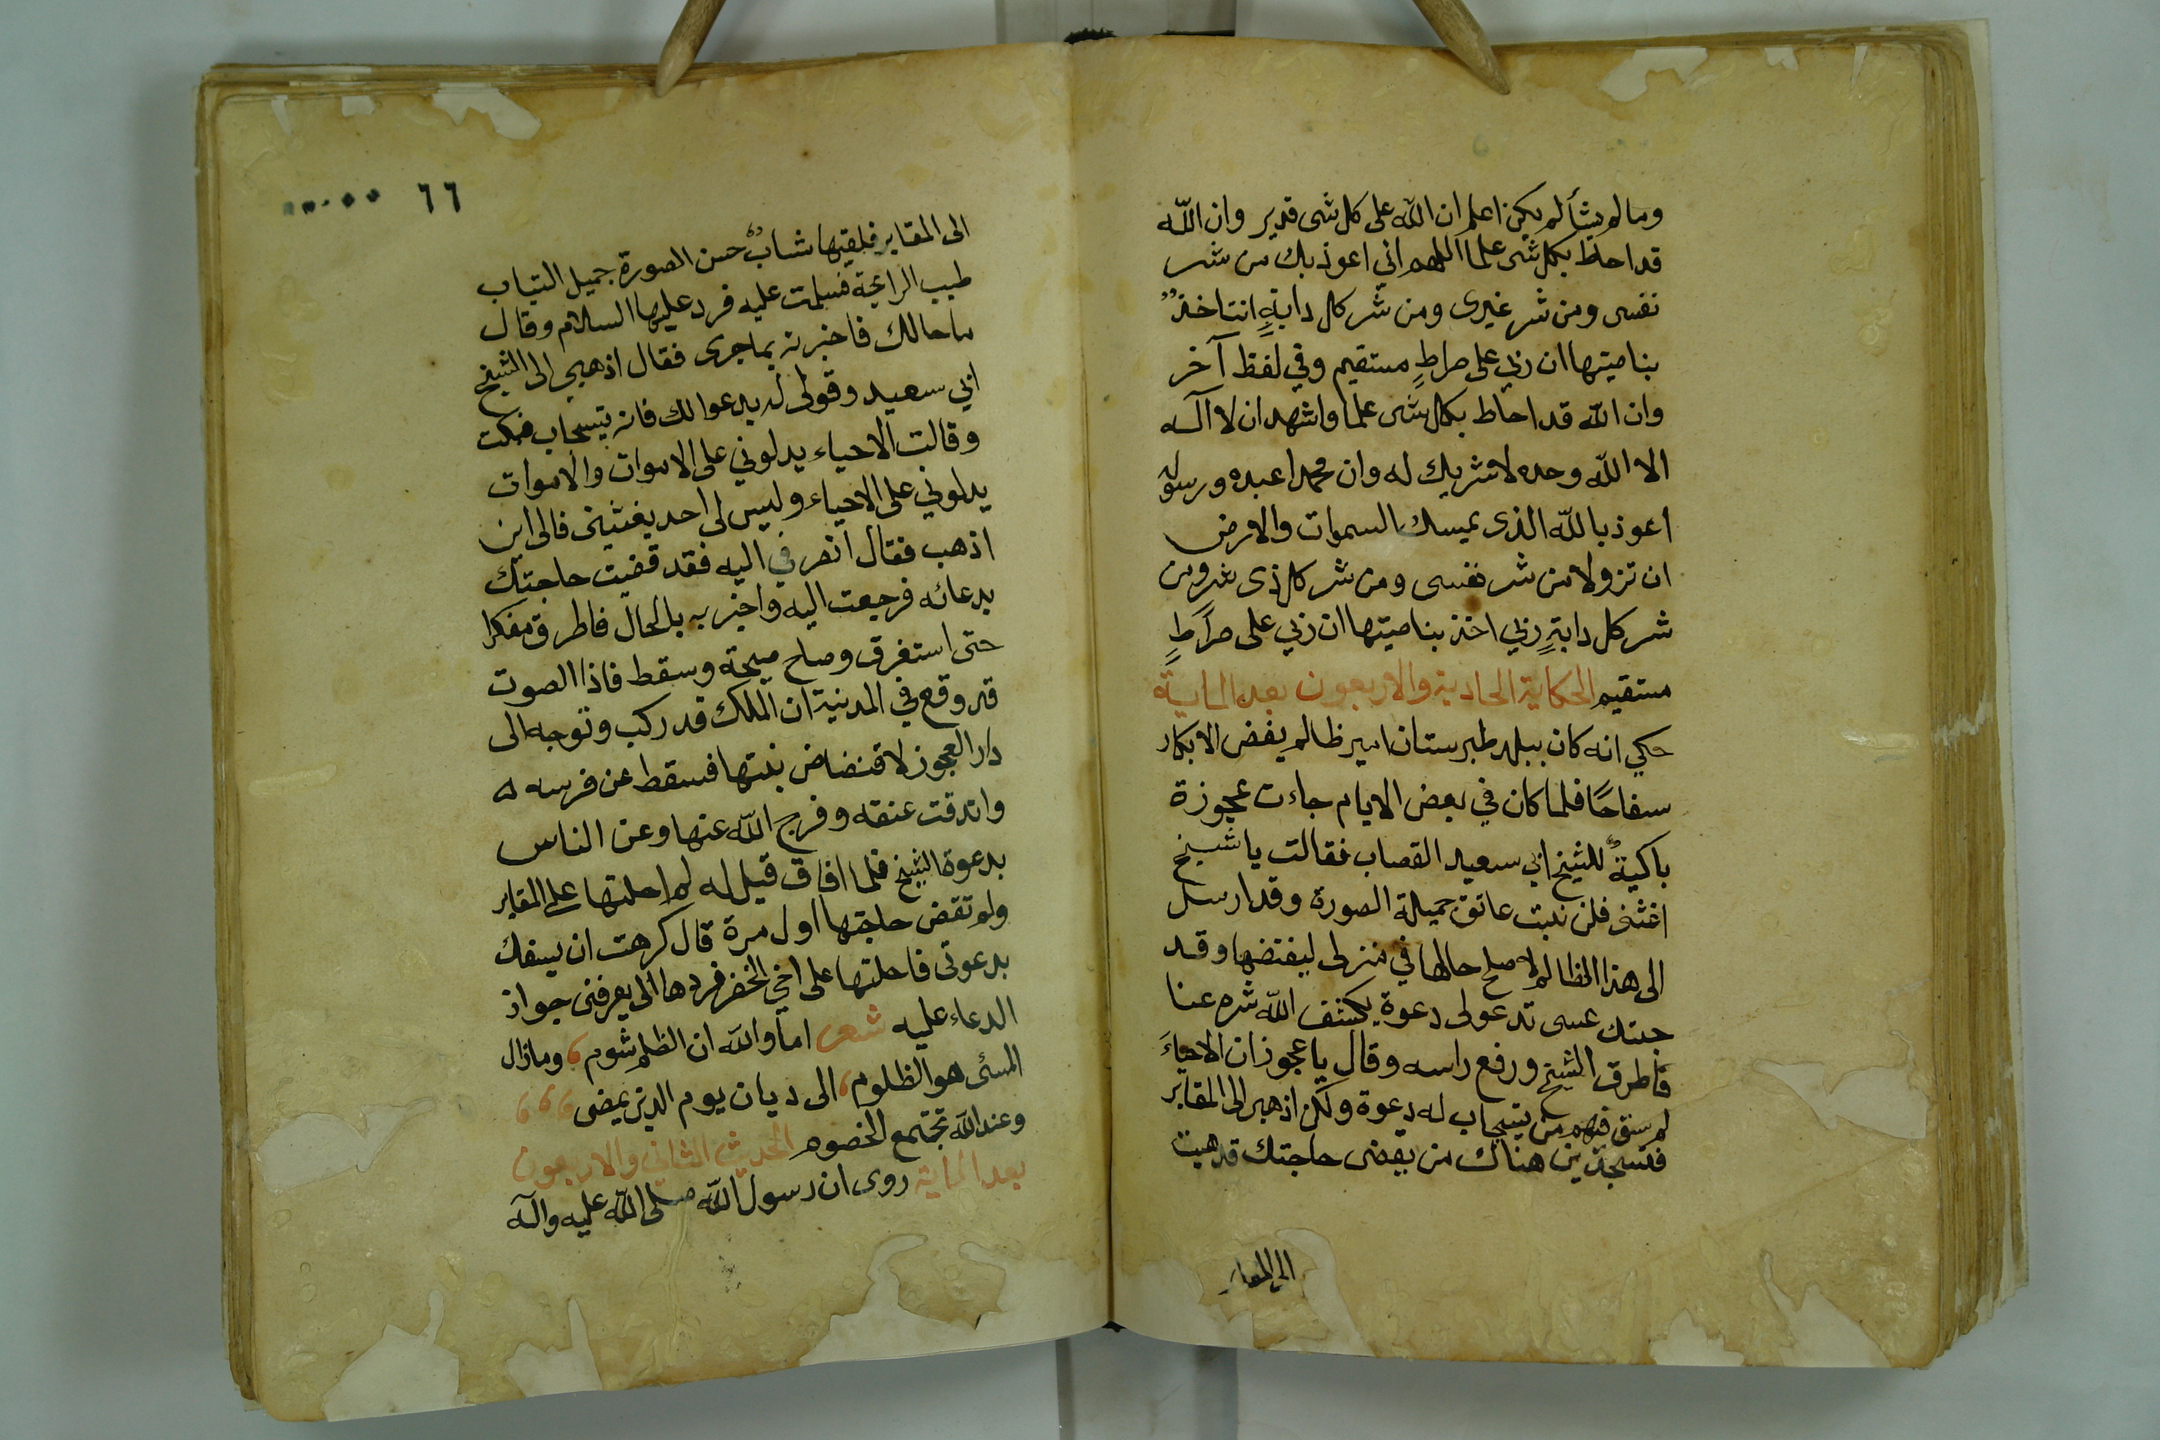 وما لم يشأ لم يكن اعلم ان الله على كل شى قدير وان الله
قد احاط بكل شى علما اللهم اني اعوذ بك من شر
نفسى ومن شر غيرى ومن شر كل دابةٍ انت اخذٌ
بناصيتها ان ربي على صراطٍ مستقيم وفي لفظ آخر
وان الله قد احاط بكل شى علما واشهد ان لا اله
الا الله وحده لا شريك له وان محمدا عبده ورسوله
اعوذ بالله الذى يمسك السموات والارض
ان تزولا من شر نفسى ومن شر كل ذى شر ومن
شر كل دابةٍ ربي اخذ بناصيتها ان ربي على صراطٍ
مستقيم الحكاية الحادية والاربعون بعد الماية
حكي انه كان ببلد طبرستان امير ظالم يفض الابكار
سفاحًا فلما كان في بعض الايام جاءت عجوزة
باكيةٌ للشيخ ابي سعيد القصاب فقالت يا شيخ
اغثنى فلى بنت عاتق جميلة الصورة وقد ارسل
الى هذا الظالم لاصلح حالها في منزلى ليفتضها وقد
جئتك عسى تدعو لى دعوة يكشف الله شره عنا
فاطرق الشيخ ورفع راسه وقال يا عجوز ان الاحياءَ
لم يبق فيهم من يستجاب له دعوة ولكن اذهبى الى المقابر
فستجدين هناك من يقضى حاجتك فذهبت
الى المقابر
٦٦
الى المقابر فلقيها شابٌ حسن الصورة جميل الثياب
طيب الرائحة فسلمت عليه فرد عليها السلام وقال
ما حالك فاخبرته بما جرى فقال اذهبي الى الشيخ
ابي سعيد وقولى له يدعوا لك فانه يستجاب فبكت
وقالت الاحياء يدلوني على الاموات والاموات
يدلوني على الاحياء وليس لى احد يغيثنى فالى اين
اذهب فقال انصرفي اليه فقد قضيت حاجتك
بدعائه فرجعت اليه واخبرته بالحال فاطرق مفكرا
حتى استغرق وصاح صيحة وسقط فاذا الصوت
قد وقع في المدينة ان الملك قد ركب وتوجه الى
دار العجوز لاقتضاض بنتها فسقط عن فرسه
واندقت عنقه وفرج الله عنها وعن الناس
بدعوة الشيخ فلما افاق قيل له لم احلتها على المقابر
ولم تقض حاجتها اول مرة قال كرهت ان يسفك
بدعوتى فاحلتها على اخي الخضر فردها الى يعرفنى جواز
الدعاء عليه شعر اما والله ان الظلم شوم وما زال
المسئ هو الظلوم الى ديان يوم الدين نمضى
وعند الله تجتمع الخصوم الحديث الثاني والاربعون
بعد الماية روى ان رسول الله صلى الله عليه وآله